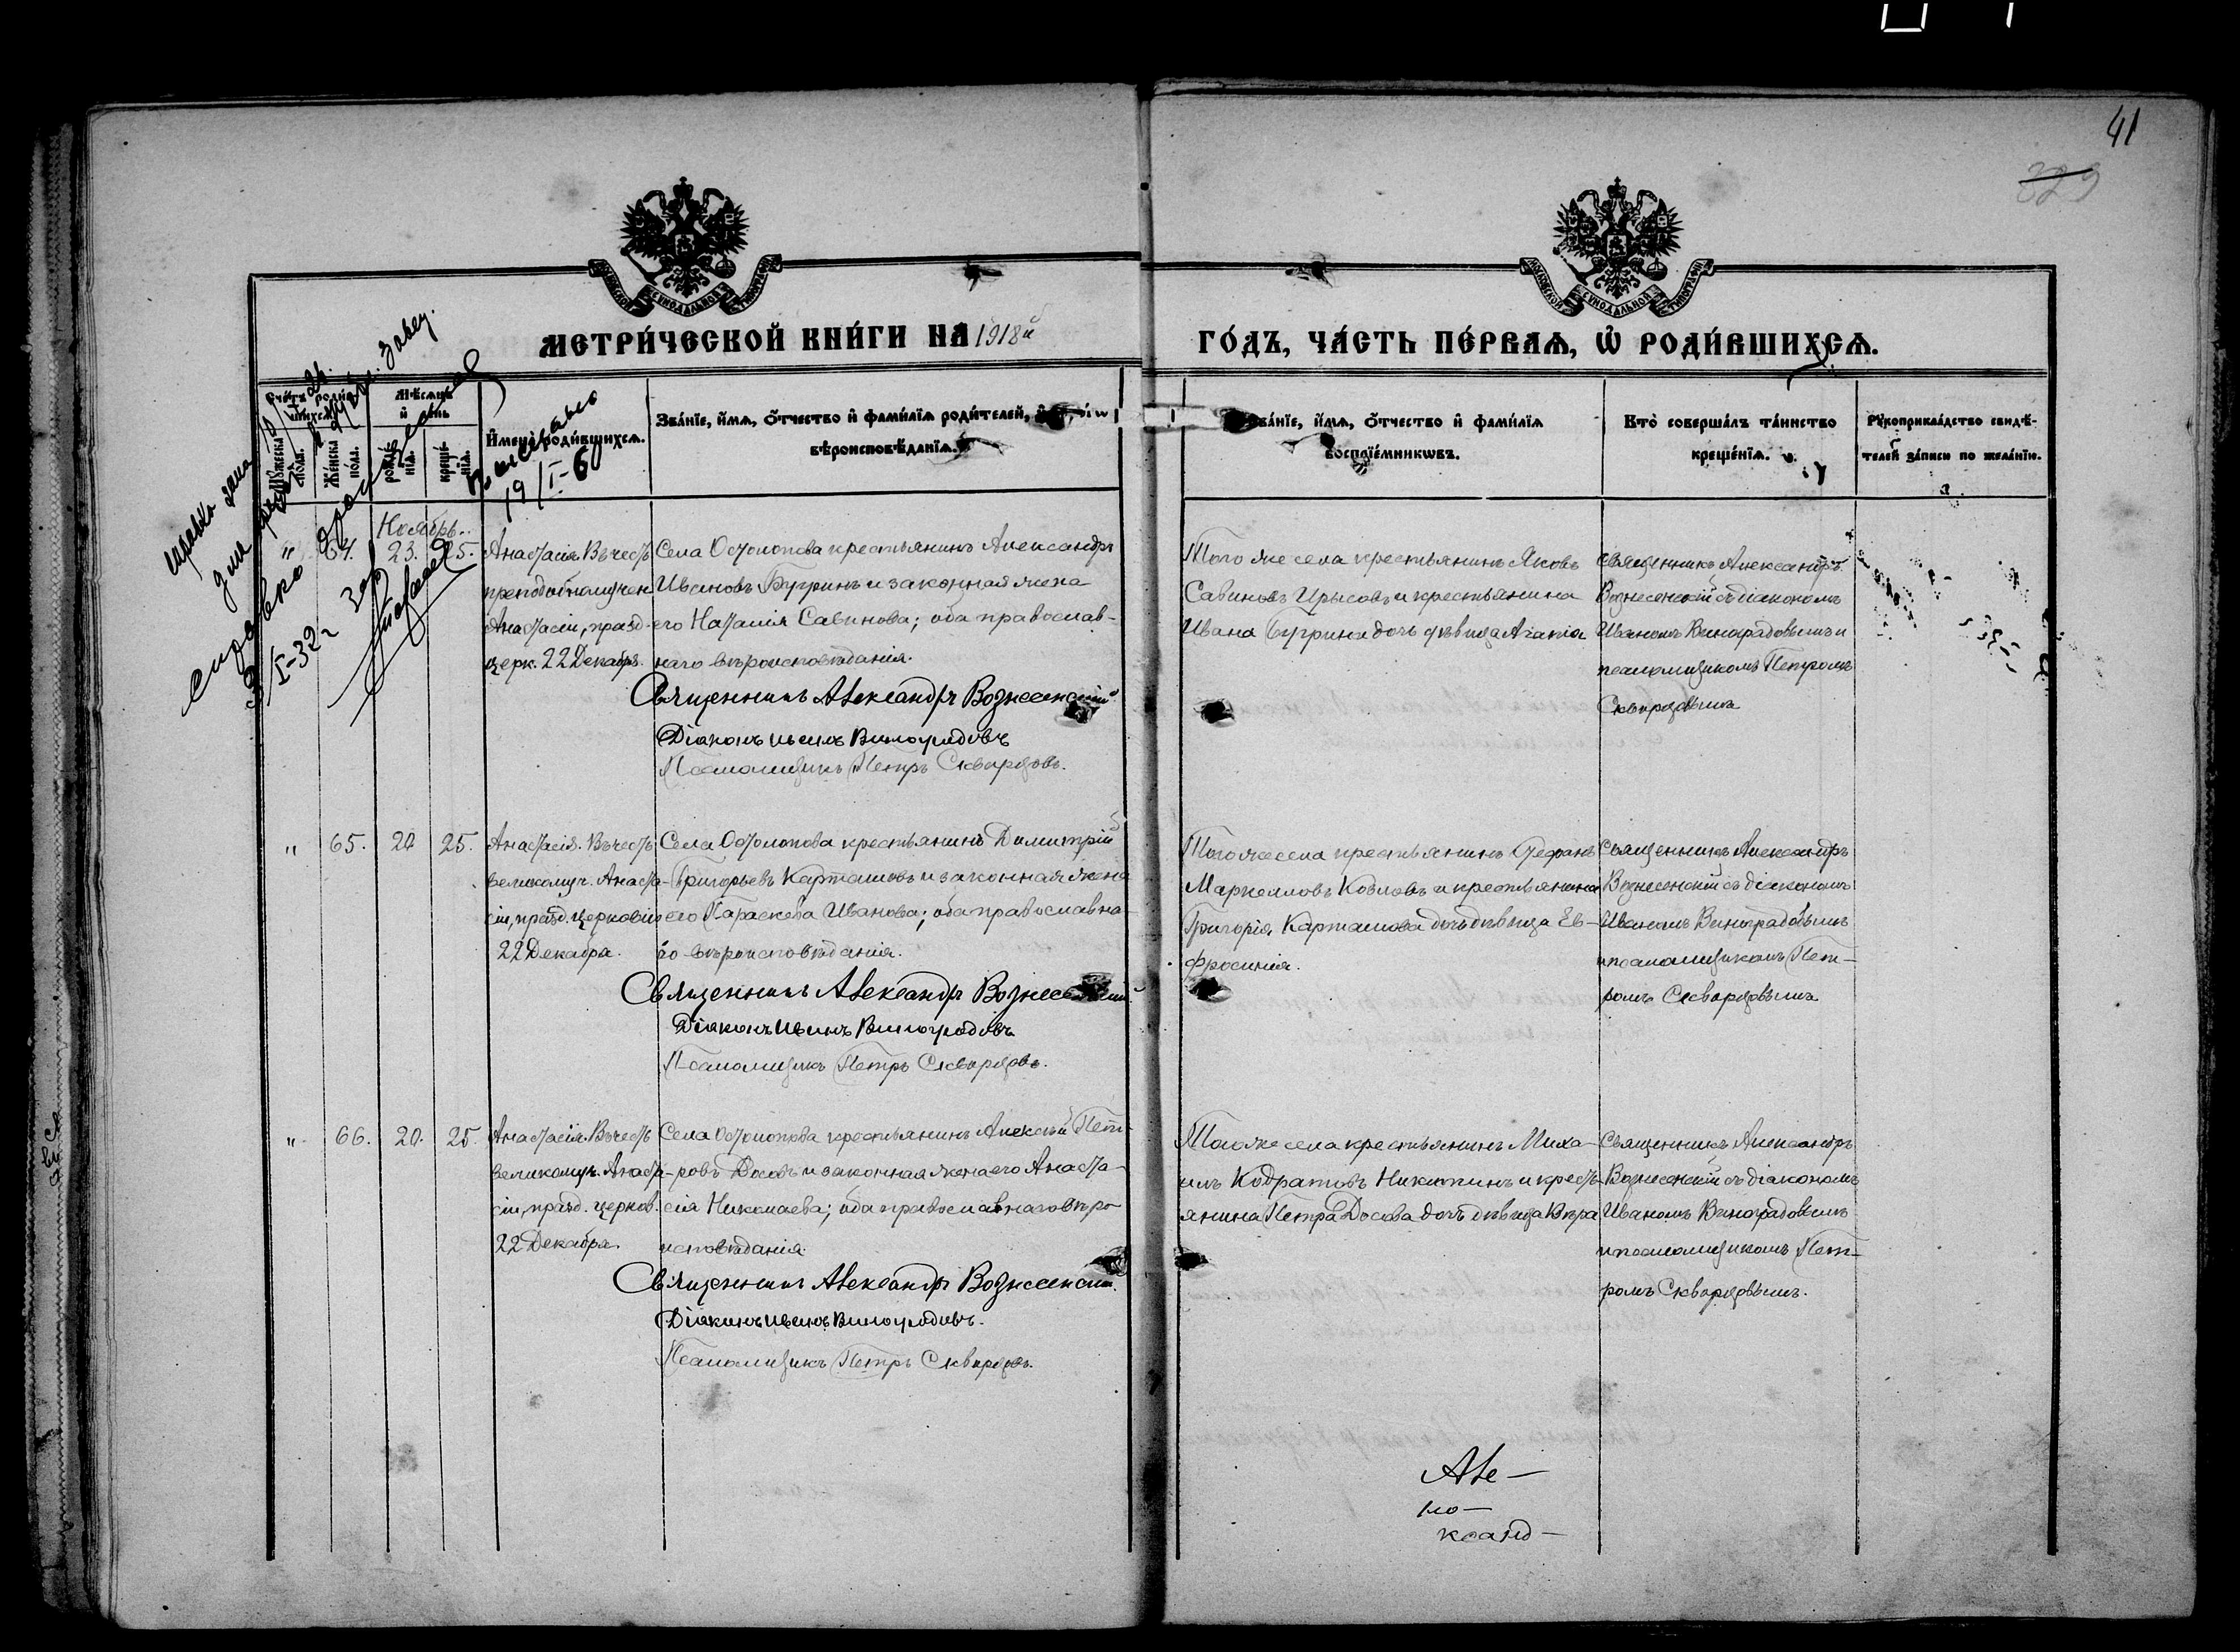 41
329
МОСКОВСКОЙ СѴНОДАЛЬНОЙ ТИПОГРАФІИ
МОСКОВСКОЙ СѴНОДАЛЬНОЙ ТИПОГРАФІИ
МЕТРИ́ЧЕСКОЙ КНИ́ГИ НА 1918й
ГО́ДЪ, ЧА́СТЬ ПЕ́РВАѦ, Ѡ҆ РОДИ́ВШИХСѦ.
Счётъ роди́вшихсѧ.
Мѣ́сѧцъ и҆ де́нь
Мꙋ́жеска по́ла.
Же́нска по́ла.
рожде́нїѧ.
креще́нїѧ.
И҆мена̀ роди́вшихсѧ.
Зва́нїе, и҆́мѧ, ѻ҆́тчество и҆ фами́лїѧ роди́телей,
вѣроисповѣ́данїѧ.
Зва́нїе, и҆́мѧ, ѻ҆́тчество и҆ фами́лїѧ
воспрїе́мникѡвъ.
Кто̀ соверша́лъ та́инство
креще́нїѧ.
Рꙋкоприкла́дство свидѣ́телей за́писи по жела́нїю.
справка
I-32 г
19/I-6
Ноябрь.
" 64. 23. 25.
Анастасія. Въ честь
преподобномучен.
Анастасіи, празд.
церк. 22 Декабр.
Села Остолопова крестьянинъ Александръ
Ивановъ Бурринъ и законная жена
его Наталія Савинова; оба православ-
наго вѣроисповѣданія.
Священникъ Александръ Вознесенскій
Діаконъ Иванъ Виноградовъ
Псаломщикъ Петръ Скворцовъ.
Того же села крестьянинъ Яковъ
Савиновъ Ирысовъ и крестьянина
Ивана Буррина дочь дѣвица Агапія
Священникъ Александръ
Вознесенскій съ діакономъ
Иваномъ Виноградовымъ и
псаломщикомъ Петромъ
Скворцовымъ
" 65. 20 25.
Анастасія. Въ честь
великомуч. Анаста-
сіи, празд. церковію
22 Декабря.
Села Остолопова крестьянинъ Димитрій
Григорьевъ Карташовъ и законная жена
его Параскева Иванова; оба православна-
го вѣроисповѣданія.
Священникъ Александръ Вознесенскій
Діаконъ Иванъ Виноградовъ
Псаломщикъ Петръ Скворцовъ.
Того же села крестьянинъ Стефанъ
Маркелловъ Козловъ и крестьянина
Григорія Карташова дочь дѣвица Ев-
фросинія.
Священникъ Александръ
Вознесенскій съ діакономъ
Иваномъ Виноградовымъ
и псаломщикомъ Пет-
ромъ Скворцовымъ
" 66. 20. 25.
Анастасія. Въ честь
великомуч. Анаста-
сіи, празд. церков.
22 Декабря.
Села Остолопова крестьянинъ Алексѣй Пет-
ровъ Досовъ и законная жена его Анаста-
сія Николаева; оба православнаго вѣро-
исповѣданія.
Священникъ Александръ Вознесенскій
Діаконъ Иванъ Виноградовъ.
Псаломщикъ Петръ Скворцовъ.
Того же села крестьянинъ Миха-
илъ Кодратовъ Никитинъ и кресть-
янина Петра Досова дочь дѣвица Вѣра
Священникъ Александръ
Вознесенскій съ діакономъ
Иваномъ Виноградовымъ
и псаломщикомъ Пет-
ромъ Скворцовымъ.
Але-
ксанд-